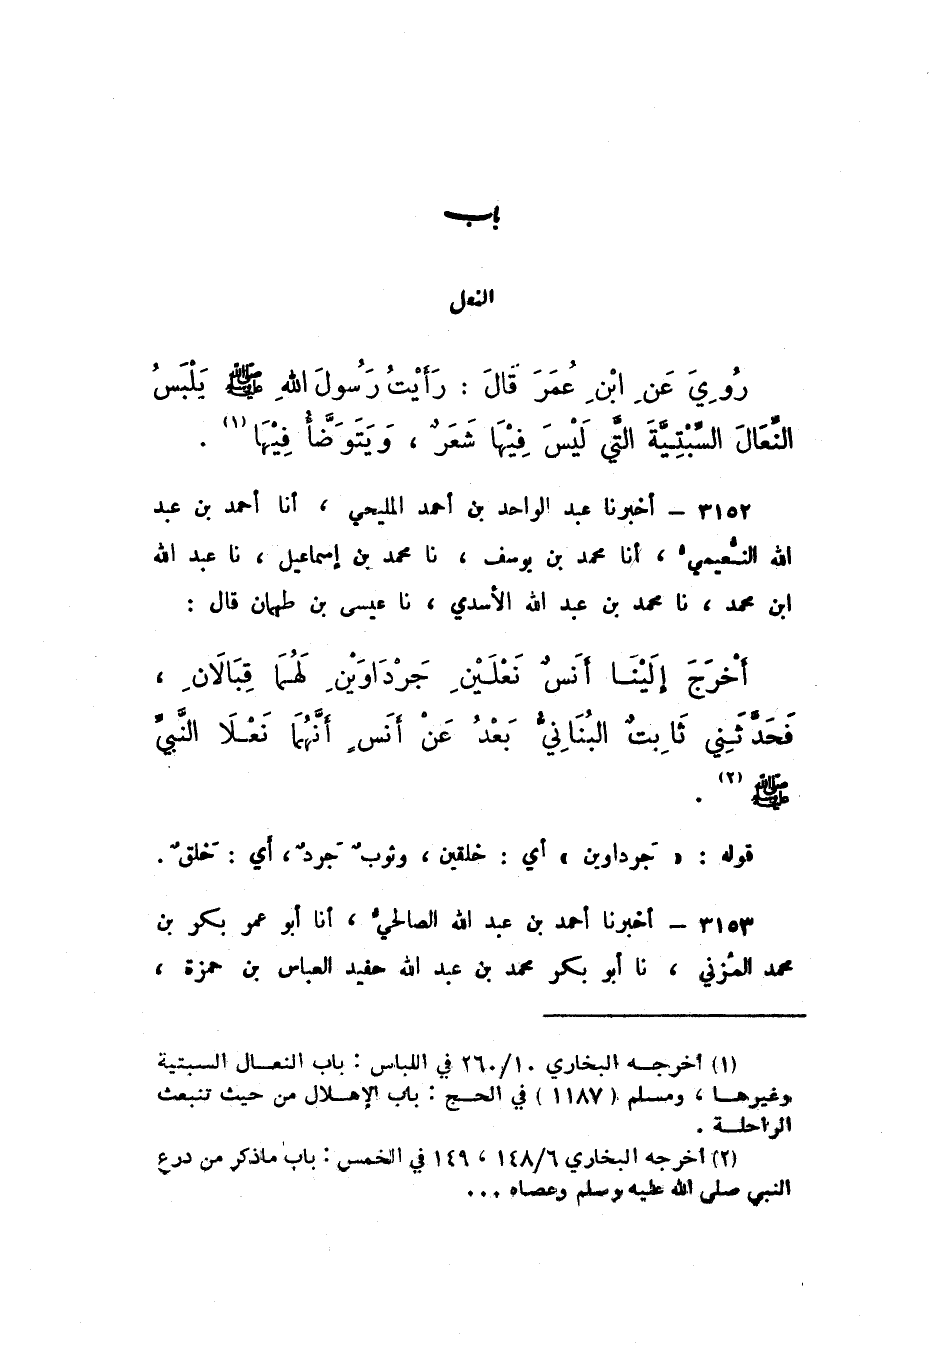 باب
النعل
رُوِيَ عَنِ ابْنِ عُمَرَ قَالَ : رَأَيْتُ رَسُولَ اللهِ ﷺ يَلْبَسُ
النِّعَالَ السِّبْتِيَّةَ الَّتِي لَيْسَ فِيْهَا شَعَرٌ ، وَيَتَوَضَّأُ فِيْهَا (١) .
٣١٥٢ – أخبرنا عبد الواحد بن أحمد المليحي ، أنا أحمد بن عبد
الله النُّعيمي ، أنا محمد بن يوسف ، نا محمد بن إسماعيل ، نا عبد الله
ابن محمد ، نا محمد بن عبد الله الأسدي ، نا عيسى بن طهمان قال :
أَخْرَجَ إِلَيْنَا أَنَسٌ نَعْلَيْنِ جَرْدَاوَيْنِ لَهُمَا قِبَالَانِ ،
فَحَدَّثَنِي ثَابِتٌ البُنَانِيُّ بَعْدُ عَنْ أَنَسٍ أَنَّهُمَا نَعْلَا النَّبِيِّ
ﷺ (٢) .
قوله : « جَرداوين » أي : خلقين ، وثوبٌ جَردٌ ، أي : خَلقٌ .
٣١٥٣ – أخبرنا أحمد بن عبد الله الصالحيُّ ، أنا أبو عمر بكر بن
محمد المُزني ، نا أبو بكر محمد بن عبد الله حفيد العباس بن حمزة ،
(١) أخرجه البخاري ٢٦٠/١٠ في اللباس : باب النعال السبتية
وغيرها ، ومسلم ( ١١٨٧ ) في الحج : باب الإهلال من حيث تنبعث
الراحلة .
(٢) أخرجه البخاري ١٤٨/٦ ، ١٤٩ في الخمس : باب ماذكر من درع
النبي صلى الله عليه وسلم وعصاه ...